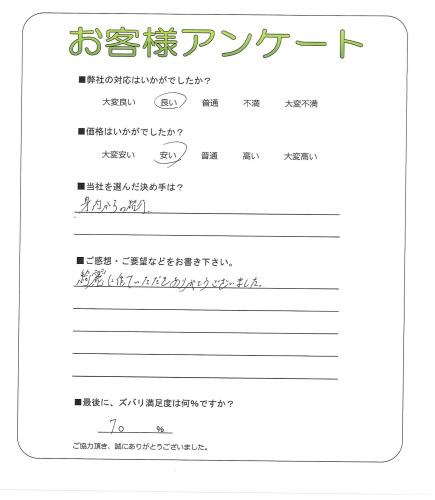 お客様アンケート
■弊社の対応はいかがでしたか？
大変良い 良い 普通 不満 大変不満
■価格はいかがでしたか？
大変安い 安い 普通 高い 大変高い
■当社を選んだ決め手は？
身内からの紹介
■ご感想・ご要望などをお書き下さい。
綺麗に仕ていただきありがとうございました。
■最後に、ズバリ満足度は何％ですか？
70 %
ご協力頂き、誠にありがとうございました。